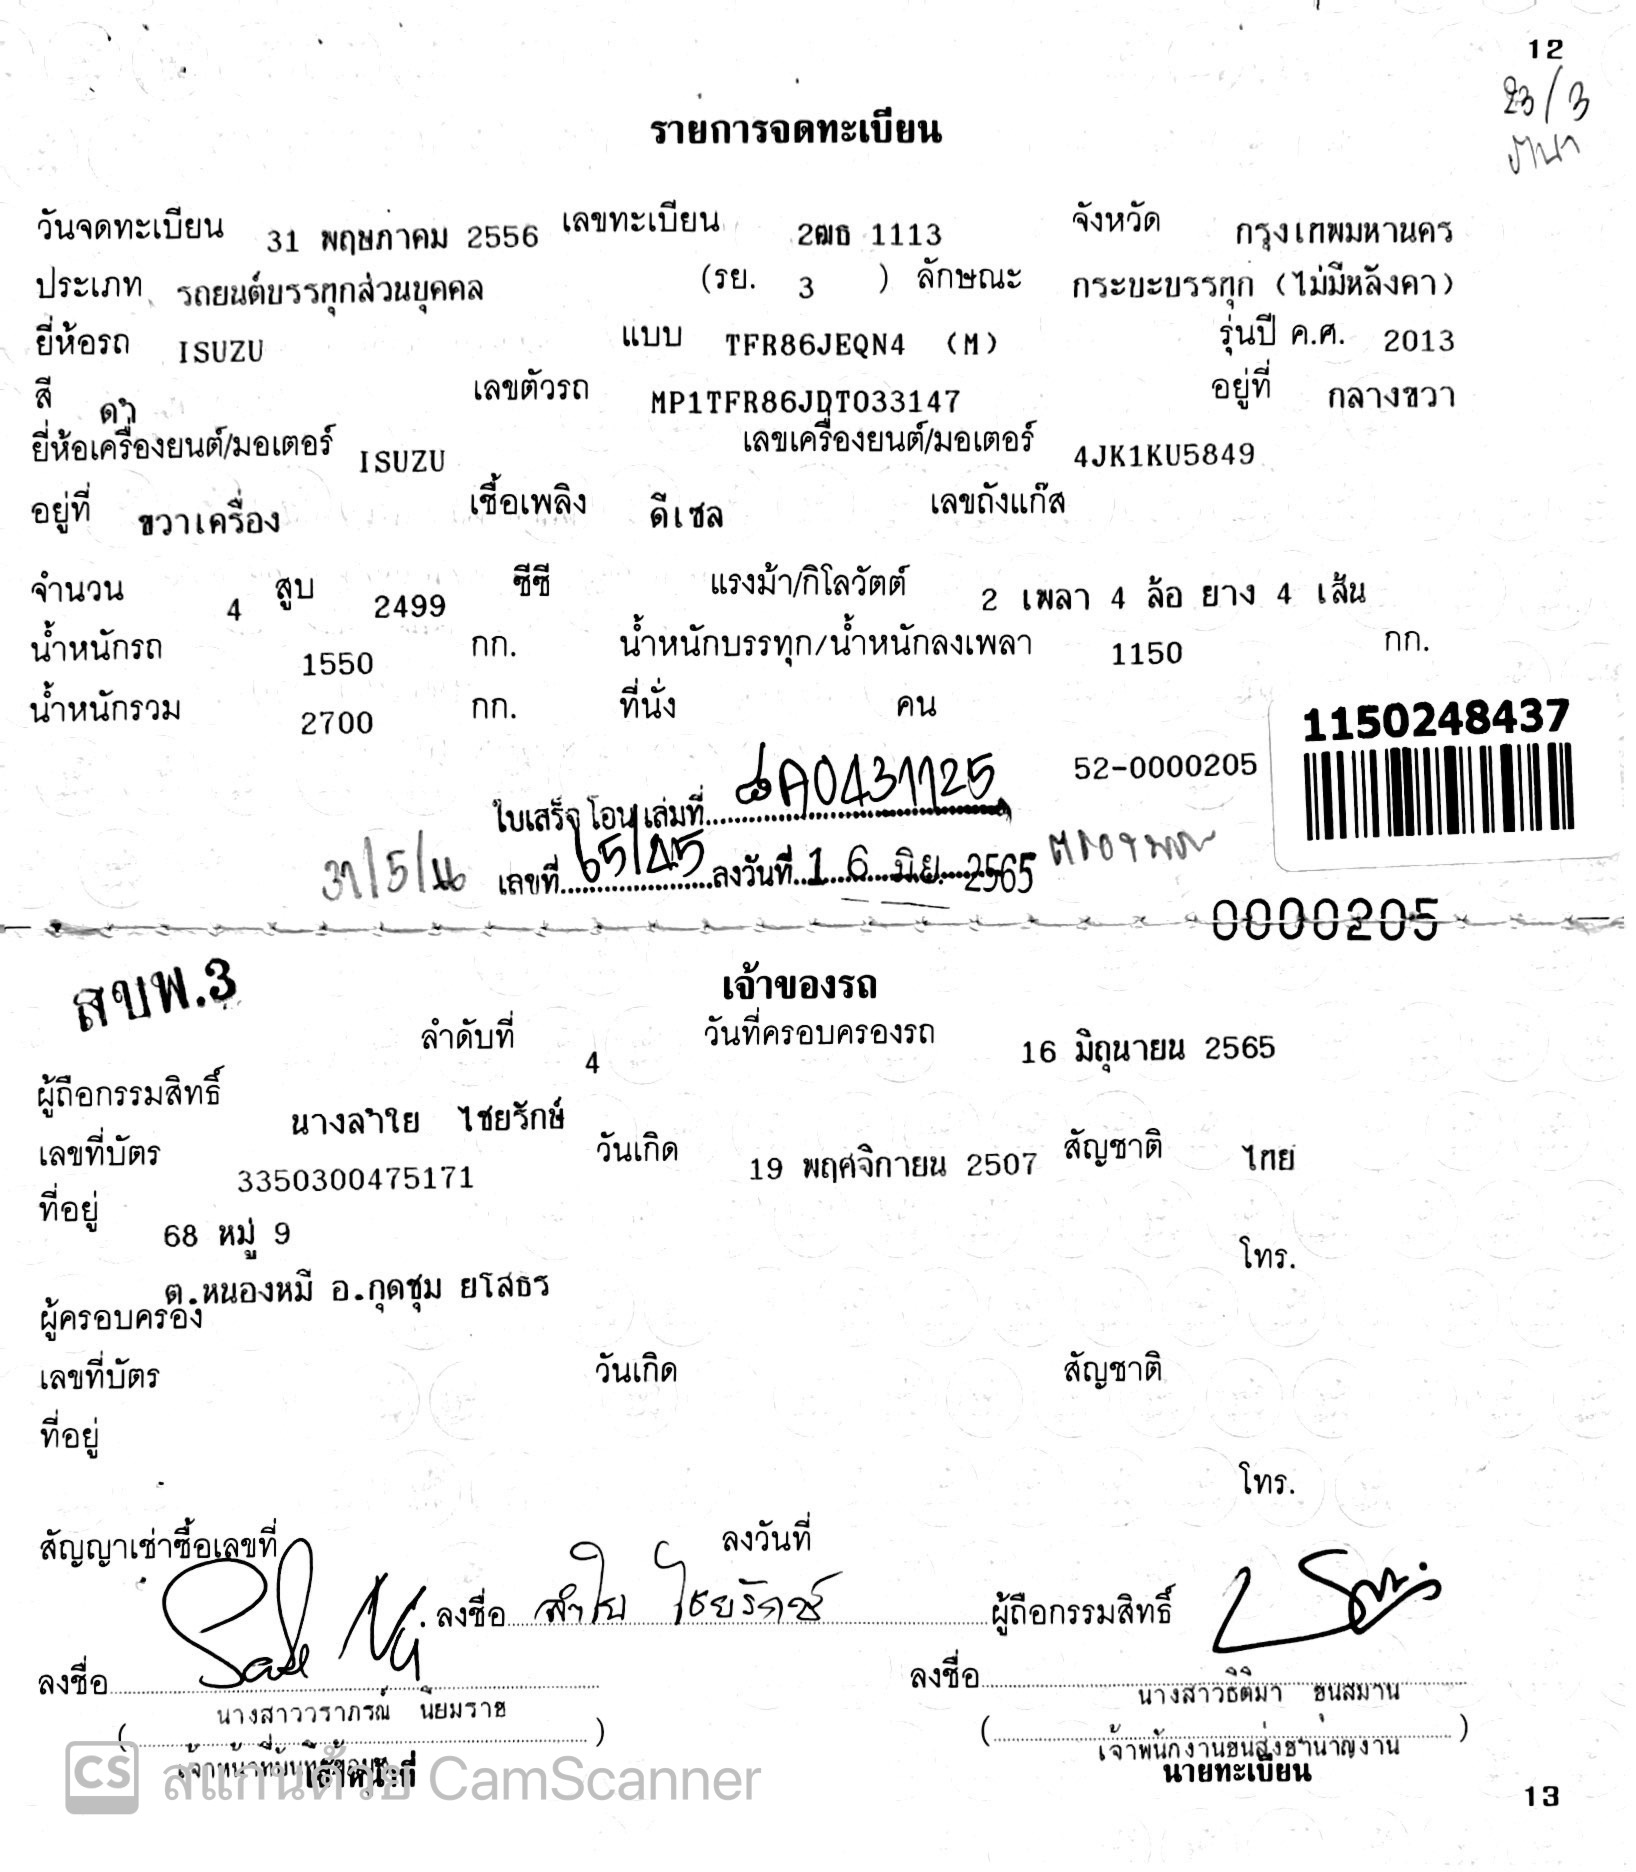 12
23/3
รายการจดทะเบียน
วันจดทะเบียน 31 พฤษภาคม 2556 เลขทะเบียน 2ฒธ 1113 จังหวัด กรุงเทพมหานคร
ประเภท รถยนต์บรรทุกส่วนบุคคล (รย. 3 ) ลักษณะ กระบะบรรทุก (ไม่มีหลังคา)
ยี่ห้อรถ ISUZU แบบ TFR86JEQN4 (M) รุ่นปี ค.ศ. 2013
สี ดำ เลขตัวรถ MP1TFR86JDT033147 อยู่ที่ กลางขวา
ยี่ห้อเครื่องยนต์/มอเตอร์ ISUZU เลขเครื่องยนต์/มอเตอร์ 4JK1KU5849
อยู่ที่ ขวาเครื่อง เชื้อเพลิง ดีเซล เลขถังแก๊ส
จำนวน 4 สูบ 2499 ซีซี แรงม้า/กิโลวัตต์ 2 เพลา 4 ล้อ ยาง 4 เส้น
น้ำหนักรถ 1550 กก. น้ำหนักบรรทุก/น้ำหนักลงเพลา 1150 กก.
น้ำหนักรวม 2700 กก. ที่นั่ง คน
1150248437
52-0000205
ใบเสร็จโอน เล่มที่ A0431125
31/5/ เลขที่ 65/45 ลงวันที่ 16 มิย. 2565
0000205
สบพ.3
เจ้าของรถ
ลำดับที่ 4 วันที่ครอบครองรถ 16 มิถุนายน 2565
ผู้ถือกรรมสิทธิ์ นางลำใย ไชยรักษ์
เลขที่บัตร 3350300475171 วันเกิด 19 พฤศจิกายน 2507 สัญชาติ ไทย
ที่อยู่ 68 หมู่ 9 โทร.
ต.หนองหมี อ.กุดชุม ยโสธร
ผู้ครอบครอง
เลขที่บัตร วันเกิด สัญชาติ
ที่อยู่
โทร.
สัญญาเช่าซื้อเลขที่ ลงวันที่
ลงชื่อ ลำใย ไชยรักษ์ ผู้ถือกรรมสิทธิ์
ลงชื่อ ลงชื่อ
(นางสาววราภรณ์ นิยมราช) (นางสาวธิติมา ขุนสมาน)
เจ้าหน้าที่บันทึกข้อมูล เจ้าพนักงานขนส่งชำนาญงาน
เจ้าหน้าที่ นายทะเบียน
CS สแกนด้วย CamScanner
13